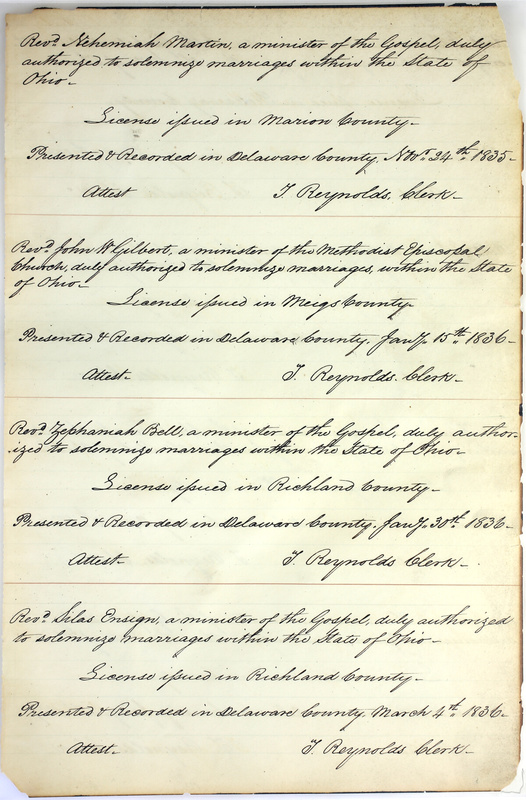 Revd. Nehemiah Martin, a minister of the Gospel, duly
authorized to solemnize marriages within the State of
Ohio-
License issued in Marion County-
Presented & Recorded in Delaware County, Novr. 24th. 1835-
Attest T. Reynolds, Clerk-
Revd. John W Gilbert, a minister of the Methodist Episcopal
Church, duly authorized to solemnize marriages, within the State
of Ohio-
License issued in Meigs County-
Presented & Recorded in Delaware County, Jany. 15th. 1836-
Attest- T. Reynolds. Clerk-
Revd. Zephaniah Bell, a minister of the Gospel, duly author-
ized to solemnize marriages within the State of Ohio-
License issued in Richland County-
Presented & Recorded in Delaware County. Jany. 30th. 1836-
Attest- T. Reynolds Clerk-
Revd. Silas Ensign, a minister of the Gospel, duly authorized
to solemnize marriages within the State of Ohio-
License issued in Richland County-
Presented & Recorded in Delaware County, March 4th. 1836-
Attest- T. Reynolds Clerk-